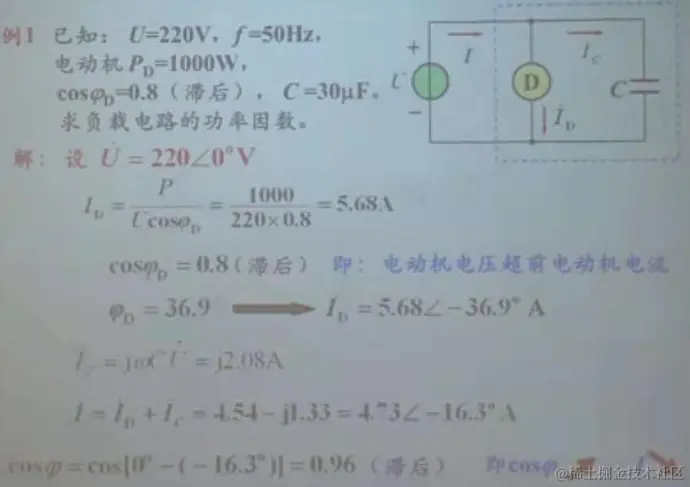 例1 已知：U=220V，f=50Hz，
电动机 P_D=1000W，
cosφ_D=0.8（滞后），C=30μF。
求负载电路的功率因数。
+
U
−
İ
D
İ_D
İ_C
C
解：设 U̇ = 220∠0°V
I_D = P/(Ucosφ_D) = 1000/(220×0.8) = 5.68A
cosφ_D = 0.8（滞后） 即：电动机电压超前电动机电流
φ_D = 36.9 İ_D = 5.68∠−36.9° A
İ_C = jωCU̇ = j2.08A
İ = İ_D + İ_C = 4.54−j1.33 = 4.73∠−16.3°A
cosφ = cos[0°−(−16.3°)] = 0.96（滞后） 即cosφ
@稀土掘金技术社区